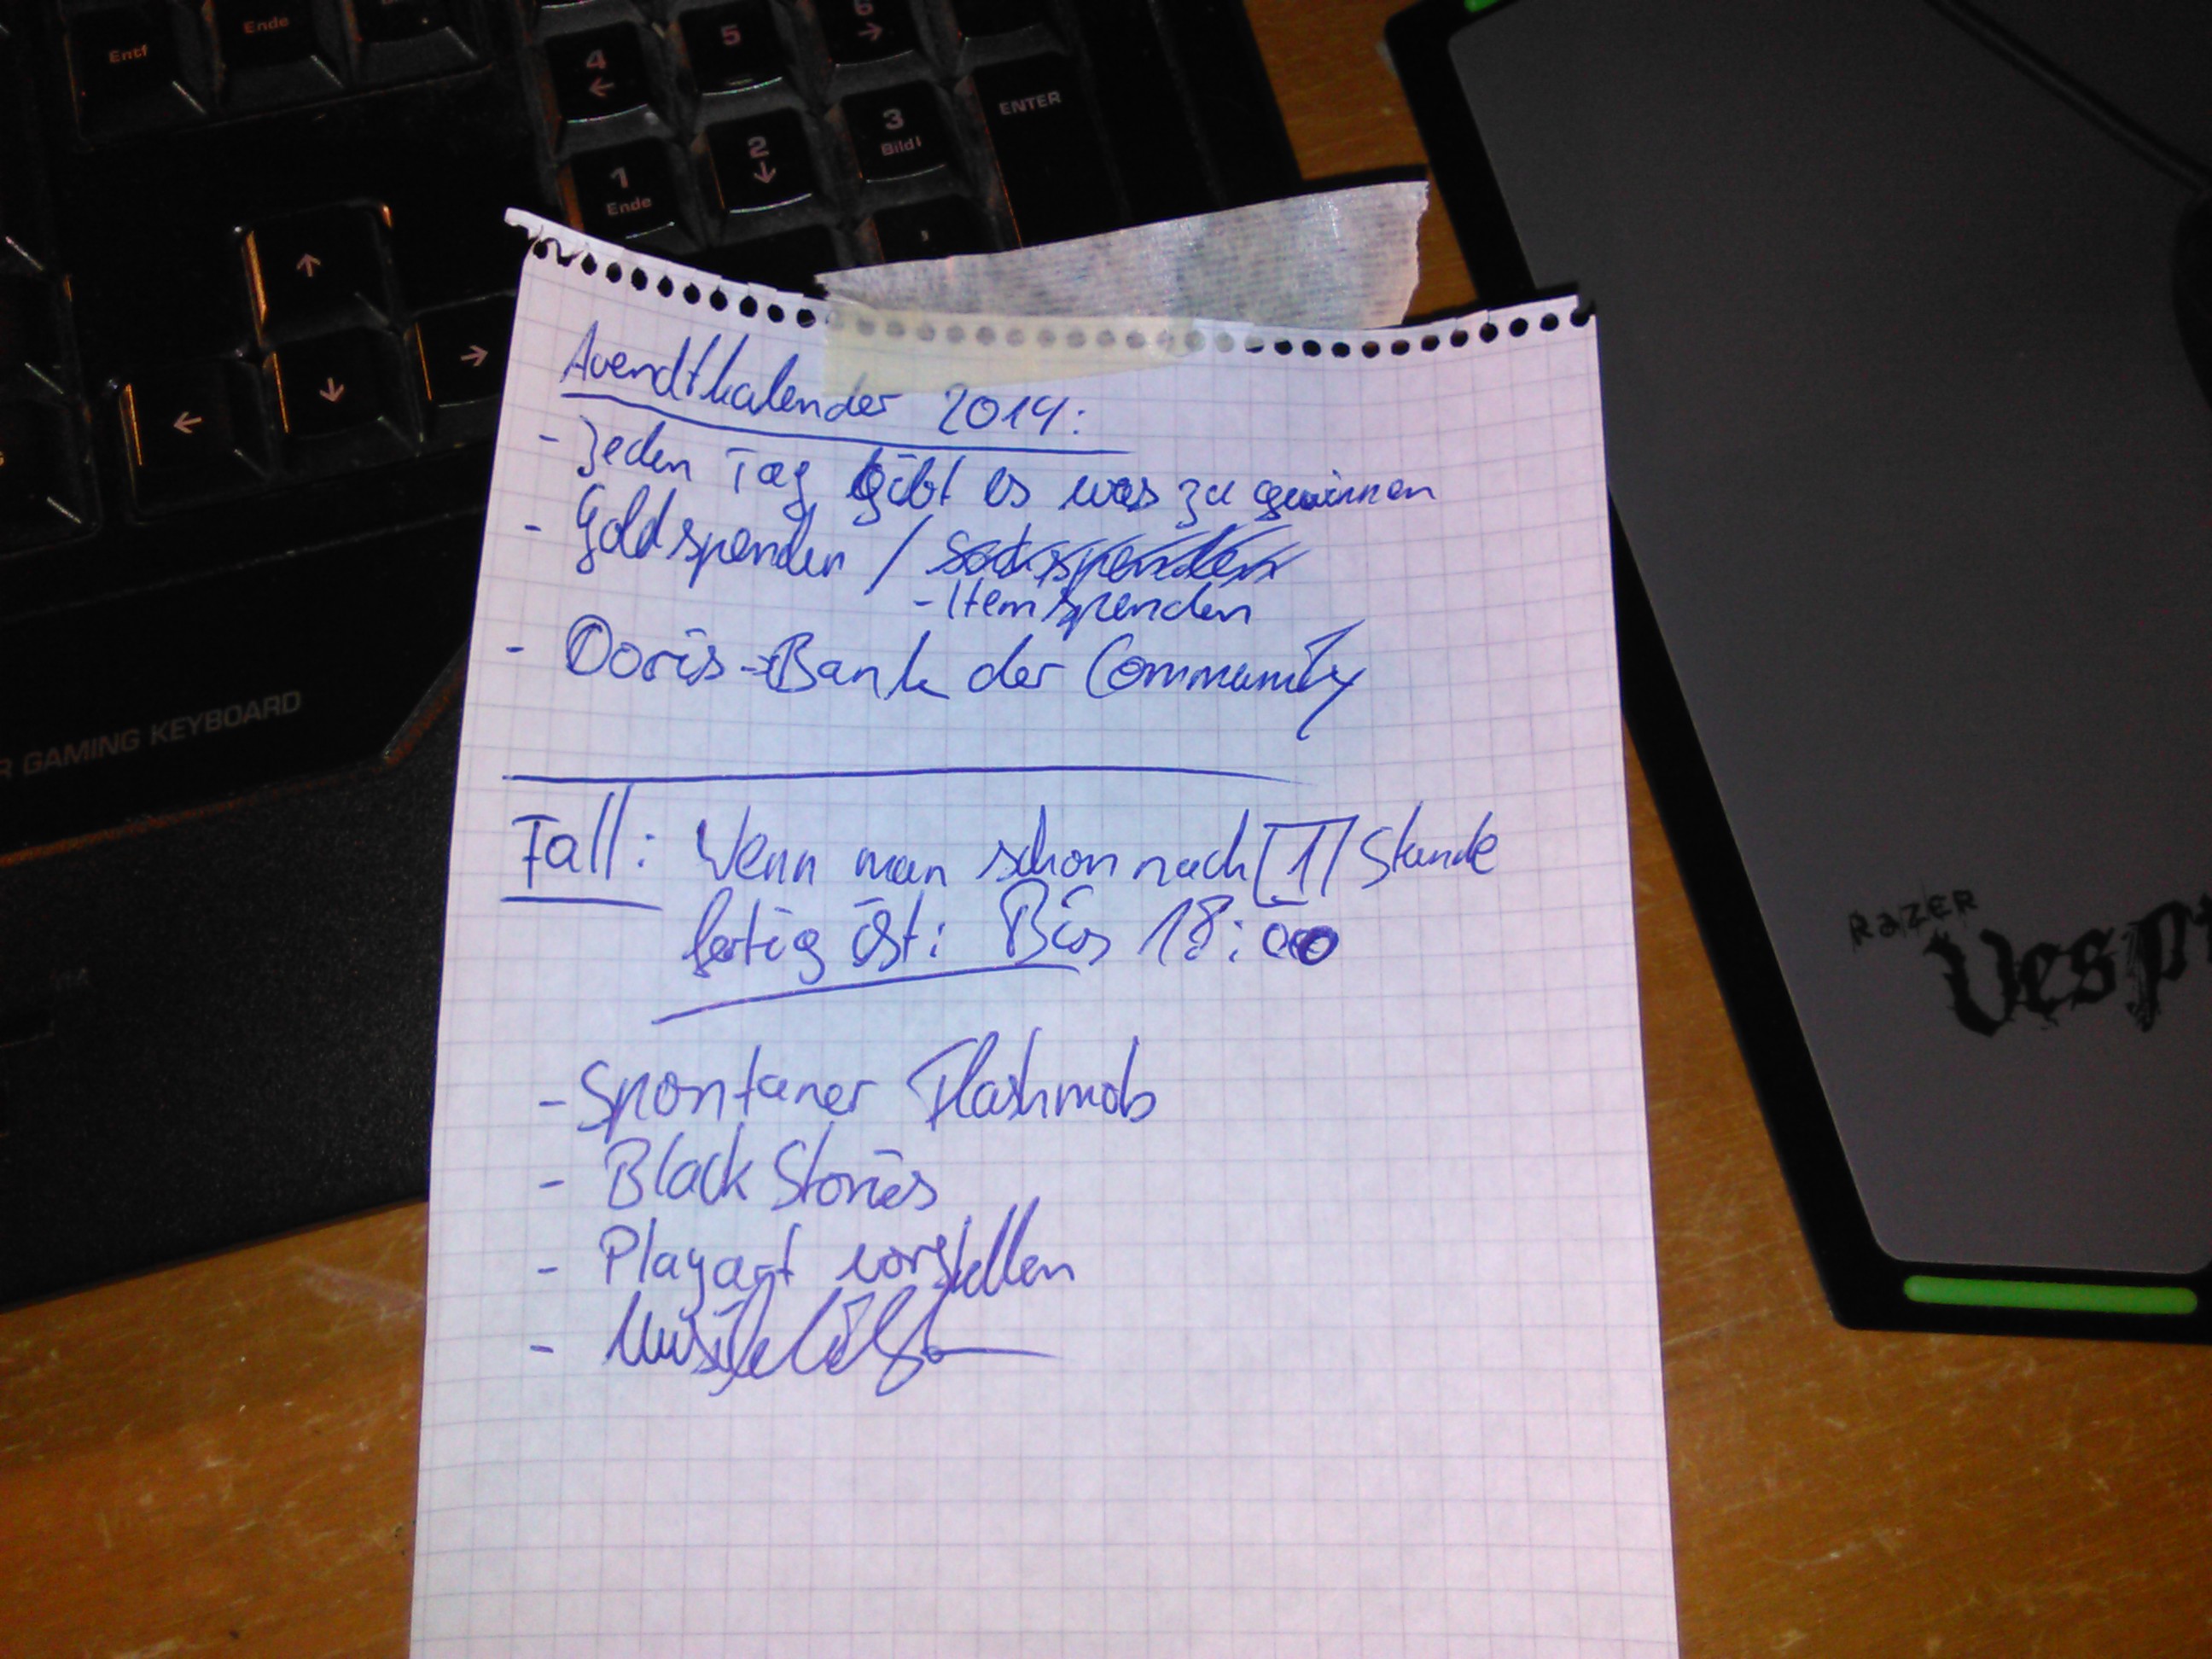 Entf
Ende
4
5
6
1
Ende
2
3
Bild
ENTER
,
GAMING KEYBOARD
RAZER
Vesp
Avendtkalender 2014:
- Jeden Tag gibt es was zu gewinnen
- Goldspenden / Sachspenden
- Itemspenden
- Doris → Bank der Community
Fall: Wenn man schon nach [1] Stunde
fertig ist: Bis 18:00
- Spontaner Flashmob
- Black Stories
- Playart vorstellen
-